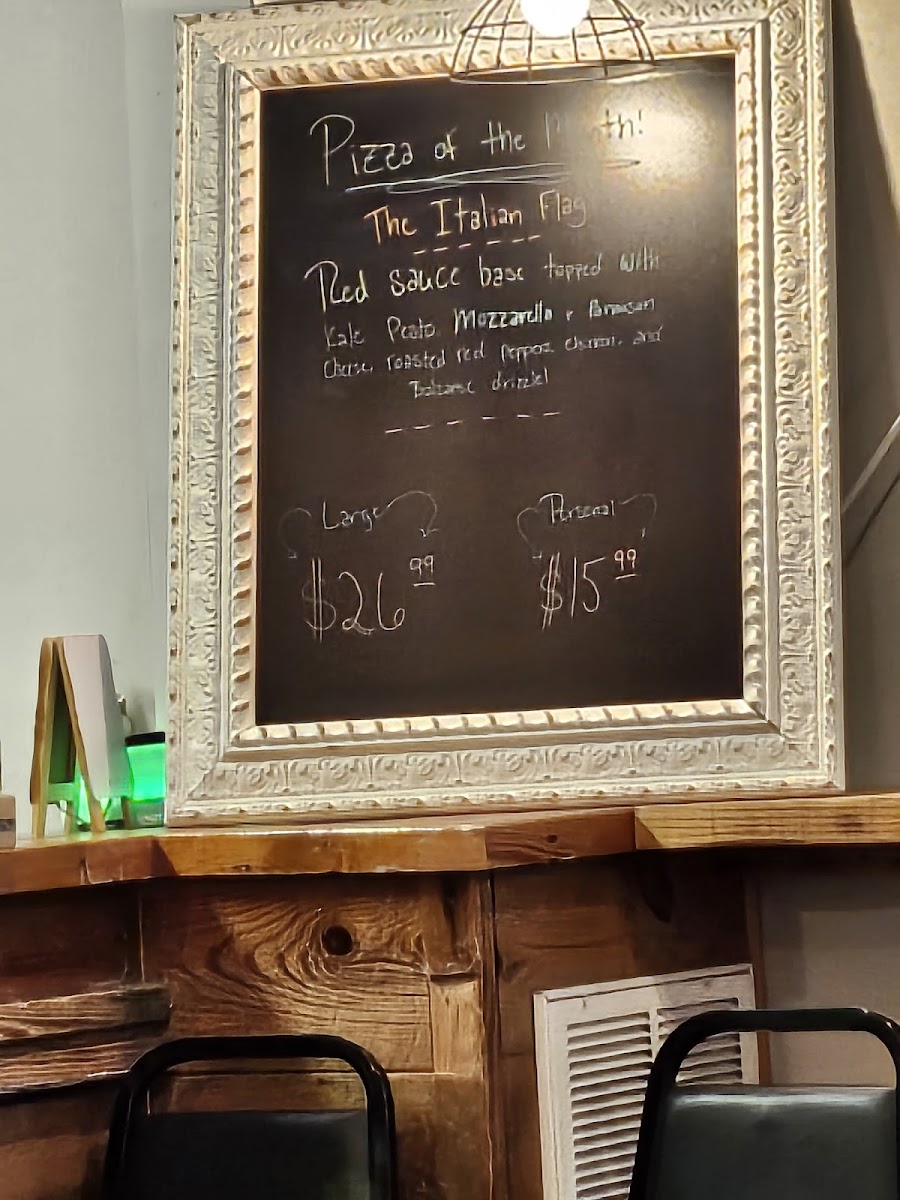 Pizza of the Month!
The Italian Flag
Red sauce base topped with
Kale Pesto Mozzarella + Parmesan
Cheese, roasted red peppers, chicken, and
Balsamic drizzle!
Large
Personal
$26 99
$15 99